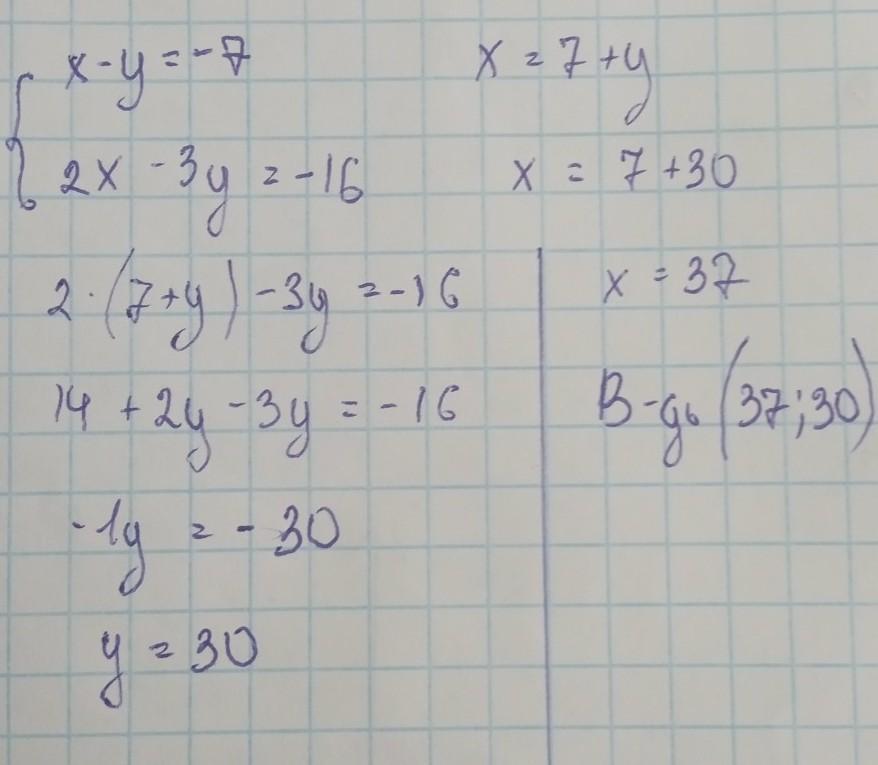 x - y = -7
2x - 3y = -16
x = 7 + y
x = 7 + 30
2 · (7 + y) - 3y = -16
14 + 2y - 3y = -16
-1y = - 30
y = 30
x = 37
В-дь (37; 30)